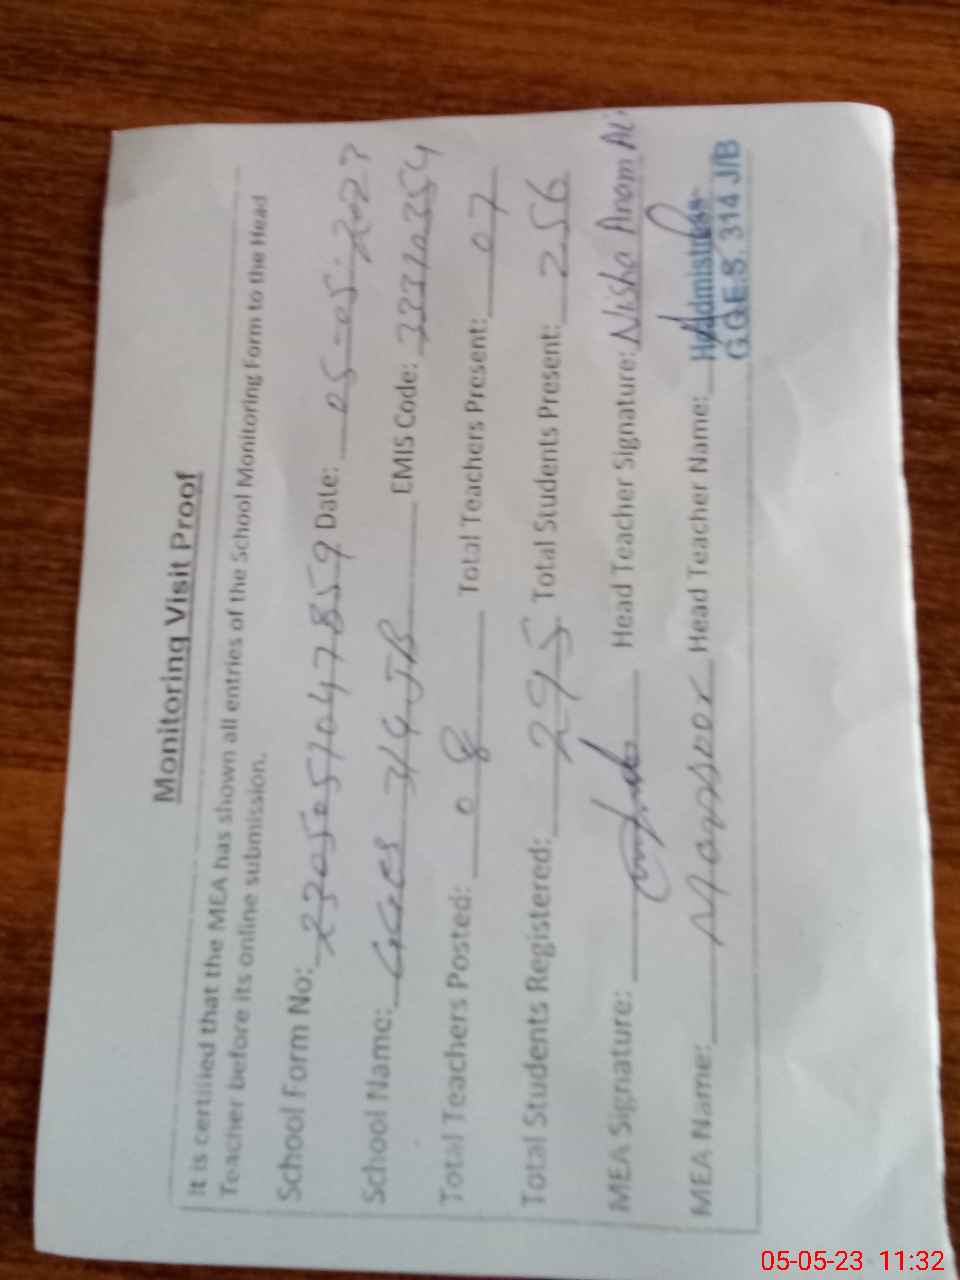 Monitoring Visit Proof
It is certified that the MEA has shown all entries of the School Monitoring Form to the Head
Teacher before its online submission.
School Form No: 230505104747859 Date: 05-05-2023
School Name: GGES 314 JB EMIS Code: 33310354
Total Teachers Posted: 08 Total Teachers Present: 07
Total Students Registered: 295 Total Students Present: 256
MEA Signature: Head Teacher Signature: Nisha Anam Ali
MEA Name: Mansoor Head Teacher Name: Headmistress
G.G.E.S. 314 J/B
05-05-23 11:32